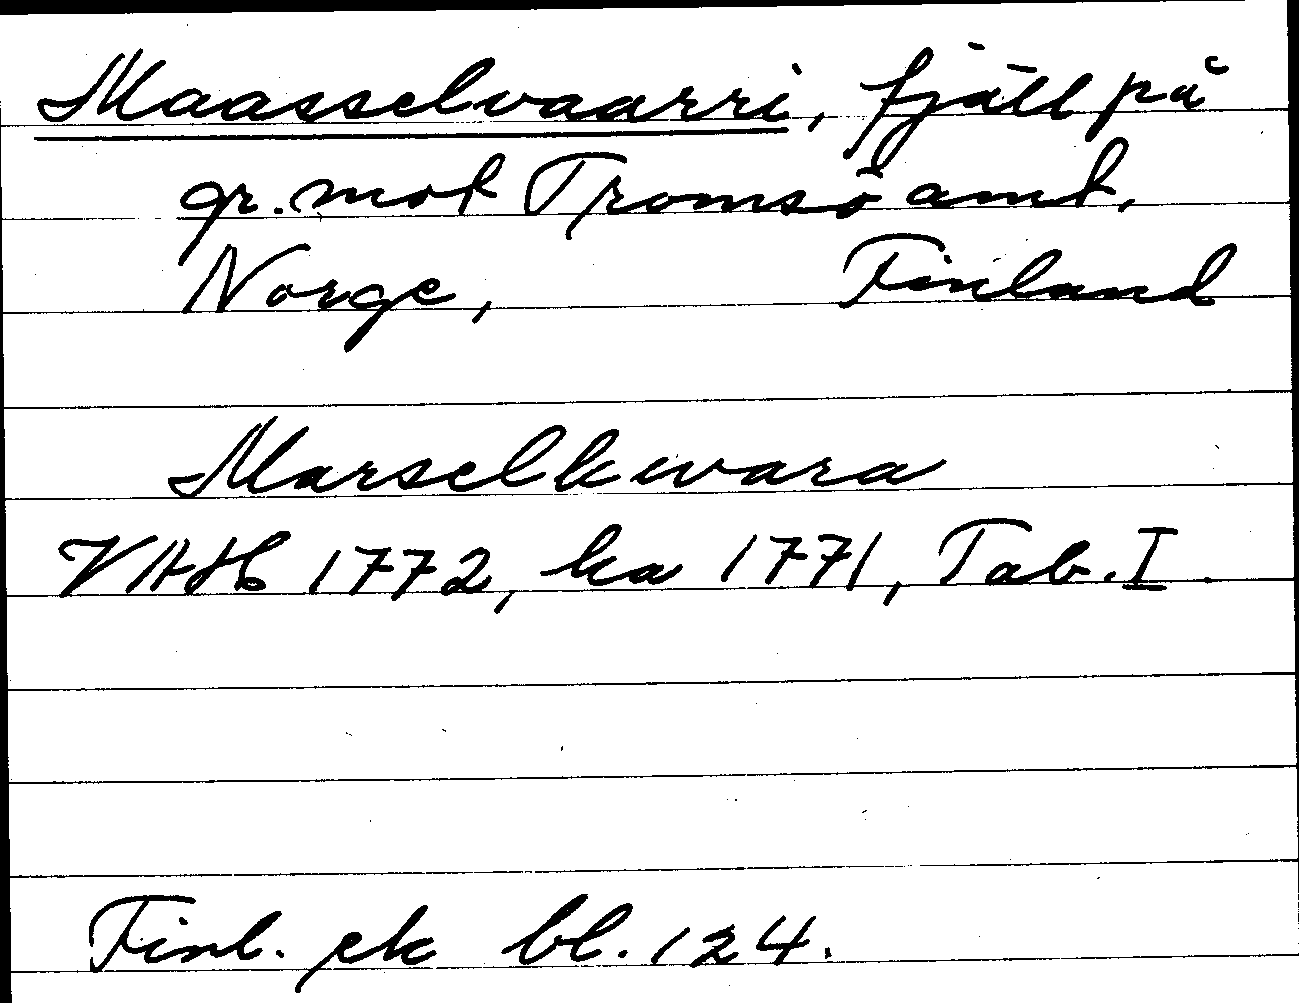 Maasselvaarri, fjäll på
gr. mot Tromsö amt,
Norge, Finland
Marselkwara
VAH 1772, ka 1771, Tab. I.
Finl. ek bl. 124.